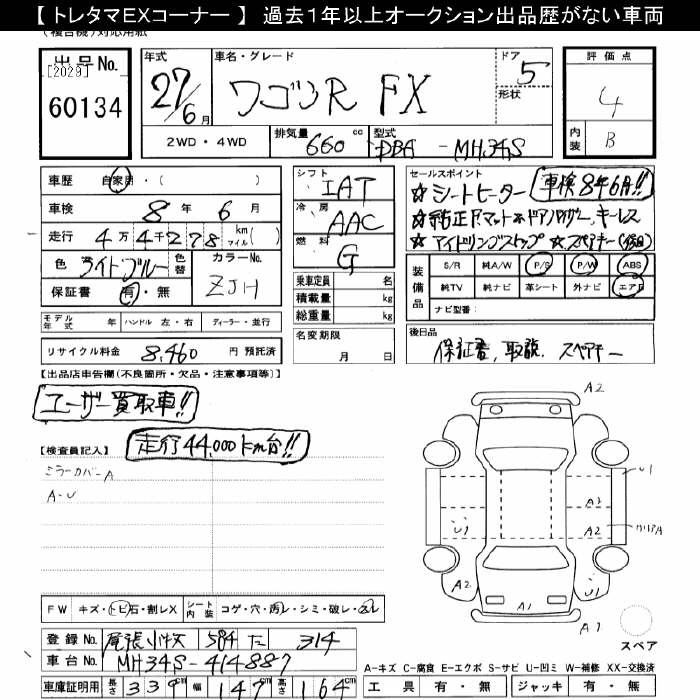 【 トレタマEXコーナー 】 過去1年以上オークション出品歴がない車両
(複合機)対応用紙
出品No.
[2029]
60134
年式
27/6月
車名・グレード
ワゴンR FX
ドア
5
形状
評価点
4
内装
B
2WD・4WD
排気量 660 cc
型式 DBA-MH34S
車歴 自家用・( )
車検 8年 6月
走行 4万4千278 km マイル( )
色 ライトブルー 色替
カラーNo. ZJH
保証書 有・無
シフト IAT
冷房 AAC
燃料 G
乗車定員 名
積載量 kg
総重量 kg
セールスポイント
☆シートヒーター 車検8年6月!!
☆純正Fマット&ドアバイザー、キーレス
☆アイドリングストップ ☆スペアキー(後日)
装備品
S/R 純A/W P/S P/W ABS
純TV 純ナビ 革シート 外ナビ エアB
ナビ型番:
モデル年式 年 ハンドル 左・右 ディーラー・並行
リサイクル料金 8,460 円 預託済
名変期限 月 日
後日品
保証書、取説、スペアキー
【出品店申告欄(不良箇所・欠品・注意事項等)】
ユーザー買取車!!
走行44,000km台!!
【検査員記入】
ミラーカバーA
A-U
A2
U1
A2
U1
A2
クリアA
A2
A2
A1
A1
FW キズ・トビ石・割レX
シート内装 コゲ・穴・汚レ・シミ・破レ・スレ
スペア
登録No. 尾張小牧 584 た 314
車台No. MH34S-414887
A-キズ C-腐食 E-エクボ S-サビ U-凹ミ W-補修 XX-交換済
車庫証明用 長さ 339 幅 147 高さ 164 cm
工具 有・無 ジャッキ 有・無